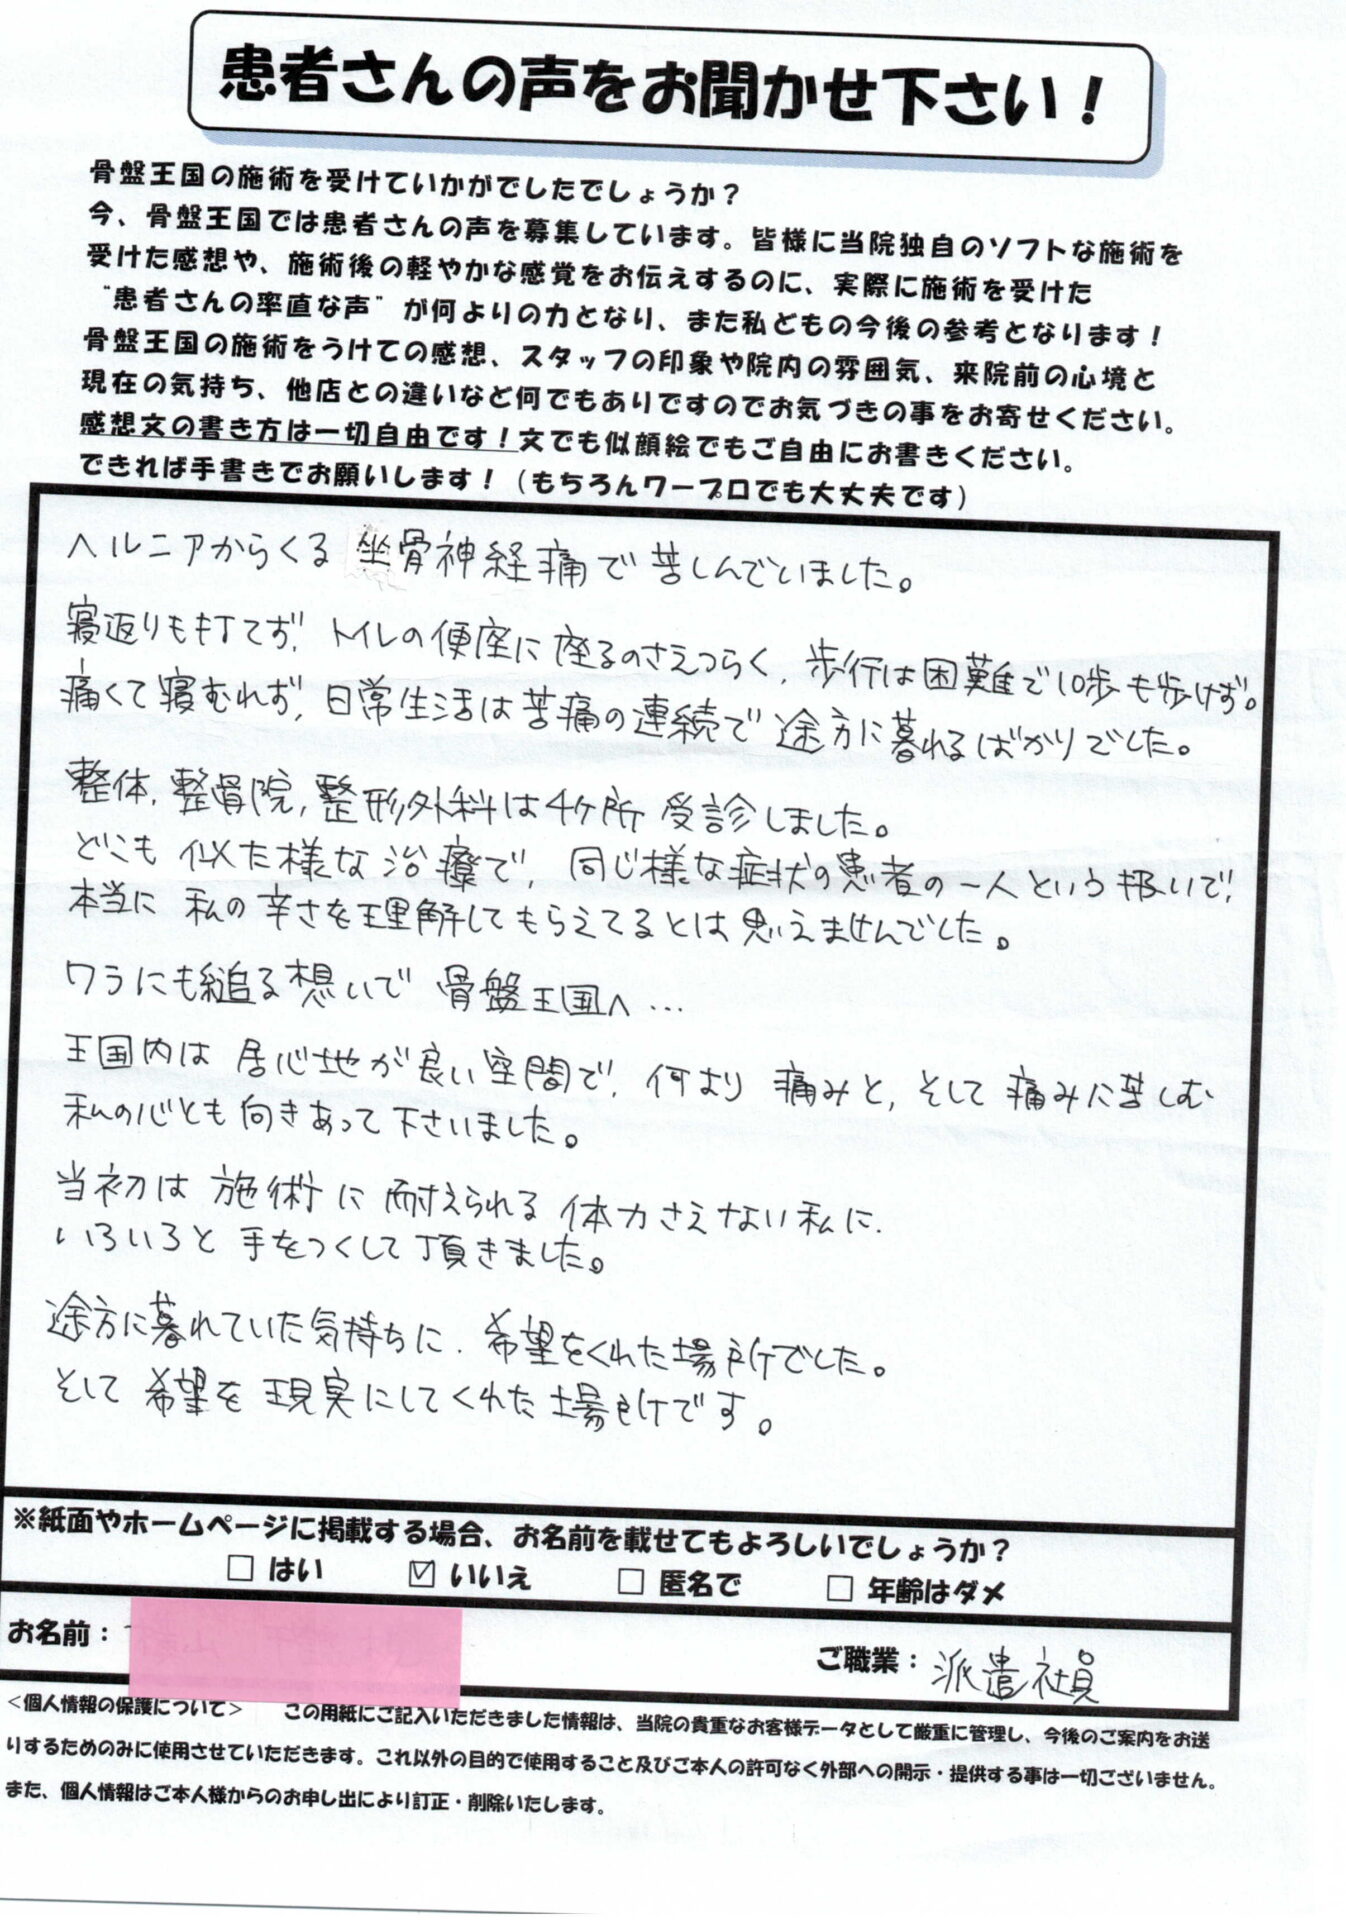 患者さんの声をお聞かせ下さい！
骨盤王国の施術を受けていかがでしたでしょうか？
今、骨盤王国では患者さんの声を募集しています。皆様に当院独自のソフトな施術を
受けた感想や、施術後の軽やかな感覚をお伝えするのに、実際に施術を受けた
"患者さんの率直な声"が何よりの力となり、また私どもの今後の参考となります！
骨盤王国の施術をうけての感想、スタッフの印象や院内の雰囲気、来院前の心境と
現在の気持ち、他店との違いなど何でもありですのでお気づきの事をお寄せください。
感想文の書き方は一切自由です！文でも似顔絵でもご自由にお書きください。
できれば手書きでお願いします！（もちろんワープロでも大丈夫です）
ヘルニアからくる坐骨神経痛で苦しんでいました。
寝返りも打てず、トイレの便座に座るのさえつらく、歩行は困難で10歩も歩けず。
痛くて寝むれず、日常生活は苦痛の連続で途方に暮れるばかりでした。
整体、整骨院、整形外科は4ケ所受診しました。
どこも似た様な治療で、同じ様な症状の患者の一人という扱いで、
本当に私の辛さを理解してもらえてるとは思いえませんでした。
ワラにも縋る想いで骨盤王国へ…
王国内は居心地が良い空間で、何より痛みと、そして痛みに苦しむ
私の心とも向きあって下さいました。
当初は施術に耐えられる体力さえない私に、
いろいろと手をつくして頂きました。
途方に暮れていた気持ちに、希望をくれた場所でした。
そして希望を現実にしてくれた場所です。
※紙面やホームページに掲載する場合、お名前を載せてもよろしいでしょうか？
□ はい ☑ いいえ □ 匿名で □ 年齢はダメ
お名前： ご職業：派遣社員
＜個人情報の保護について＞ この用紙にご記入いただきました情報は、当院の貴重なお客様データとして厳重に管理し、今後のご案内をお送
りするためのみに使用させていただきます。これ以外の目的で使用すること及びご本人の許可なく外部への開示・提供する事は一切ございません。
また、個人情報はご本人様からのお申し出により訂正・削除いたします。